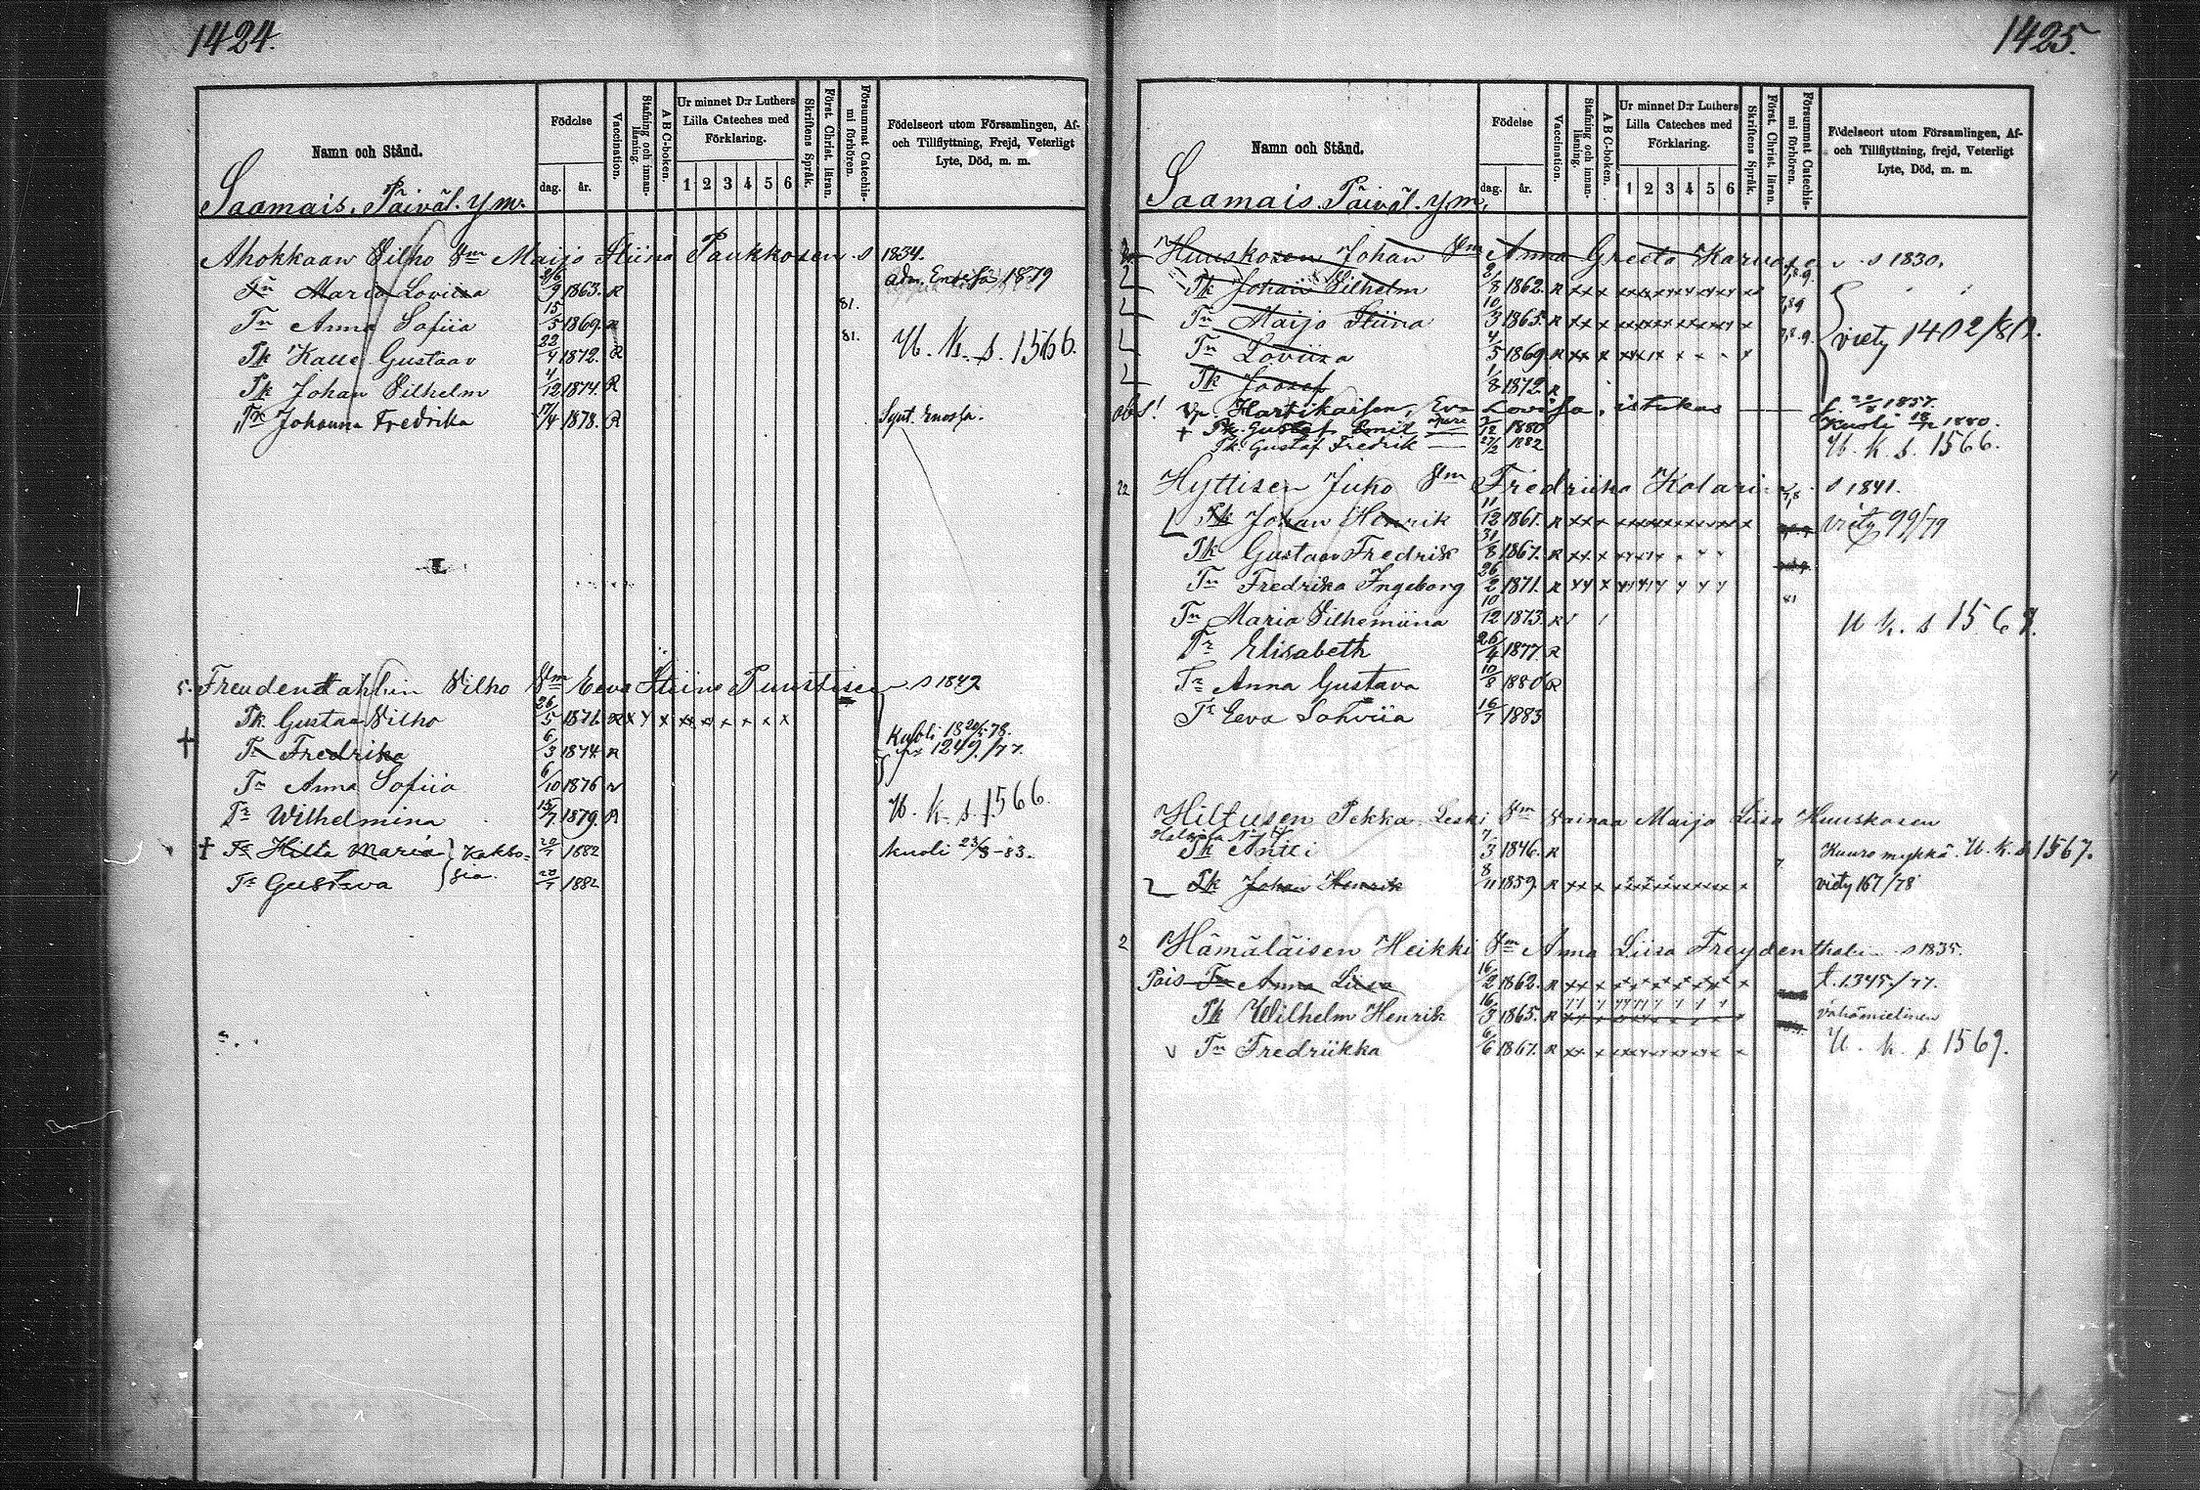 1424.
Namn och Stånd.
Födelse
dag.
år.
Vaccination.
Stafning och innan-läsning.
ABC-boken.
Ur minnet D:r Luthers Lilla Cateches med Förklaring.
1 2 3 4 5 6
Skriftens Språk.
Först. Christ. läran.
Försummat Catechis-mi förhören.
Födelseort utom Församlingen, Af- och Tillflyttning, Frejd, Veterligt Lyte, Död, m. m.
Saamais. Päiväl. ym.
Ahokkaan Vilho Vm Maijo Stiina Paukkosen s 1834.
Tn Maria Loviisa 2/9 1863. R
Tn Anna Sofiia 15/5 1869. R 81.
Pk Kalle Gustaav 22/4 1872. R 81. U. K. s. 1566.
Pk Johan Vilhelm 4/12 1874. R
Tr Johanna Fredrika 17/4 1878. R Synt. Enossa.
5. Freudenthalin Vilho Vm Eeva Stiina Puustisen s 1849
Pk Gustaa Vilho 26/5 1871. R x y x xx xx x x x x
† Tr Fredrika 6/3 1874. R kuoli 18 78. 1249./77.
Tn Anna Sofiia 6/10 1876 r
Tr Wilhelmina 15/7 1879. R U. k. s. 1566.
† Tr Hilta Maria } Kakso- 20/7 1882 kuoli 23/8 -83.
Tr Gustava } sia. 20/7 1882
1425.
Namn och Stånd.
Födelse
dag.
år.
Vaccination.
Stafning och innan-läsning.
ABC-boken.
Ur minnet D:r Luthers Lilla Cateches med Förklaring.
1 2 3 4 5 6
Skriftens Språk.
Först. Christ. läran.
Försummat Catechis-mi förhören.
Födelseort utom Församlingen, Af- och Tillflyttning, frejd, Veterligt Lyte, Död, m. m.
Saamais. Päiväl. ym.
Huuskosen Johan Vm Anna Greeta s 1830.
Pk Johan Vilhelm 2/8 1862. R
Tn Maijo Stiina 10/3 1865. R
Tn Loviisa 4/5 1869. R viety 1402/80.
Pk Joosef 1/8 1872. R
obs! Hartikaisen, Eva Lovisa, istukas 1857.
† Pk. Gustaf Emil 1880 kuoli 1880.
Pk. Gustaf Fredrik 27/2 1882 U. k. s. 1566.
22 Hyttisen Juho Vm Fredriika s 1841.
Pk Johan Henrik 11/12 1861. R viety 99/79
Pk Gustaav Fredrik 31/8 1867. R
Tn Fredrika Ingeborg 26/2 1871. R 81
Tn Maria Vilhemiina 10/12 1873. R U k. s 1567.
Tr Elisabeth 26/4 1877. R
Tr Anna Gustava 10/8 1880 R
Tr Eeva Sohviia 16/7 1883
Hiltusen Pekka. Leski Vm Vainaa Maijo Liisa Huuskosen
Pk Antti 7/3 1846. R Kuuromykkä. U. k. s. 1567.
Pk Johan Henrik 8/11 1859. R viety 167/78
2 Hämäläisen Heikki Vm Anna Liisa Freydenthalin s 1835.
Pois Tn Anna Liisa 16/2 1862. R 1345/77.
Pk Wilhelm Henrik 16/3 1865. R vähämielinen
v Tn Fredriikka 6/6 1867. R U. k. s. 1569.